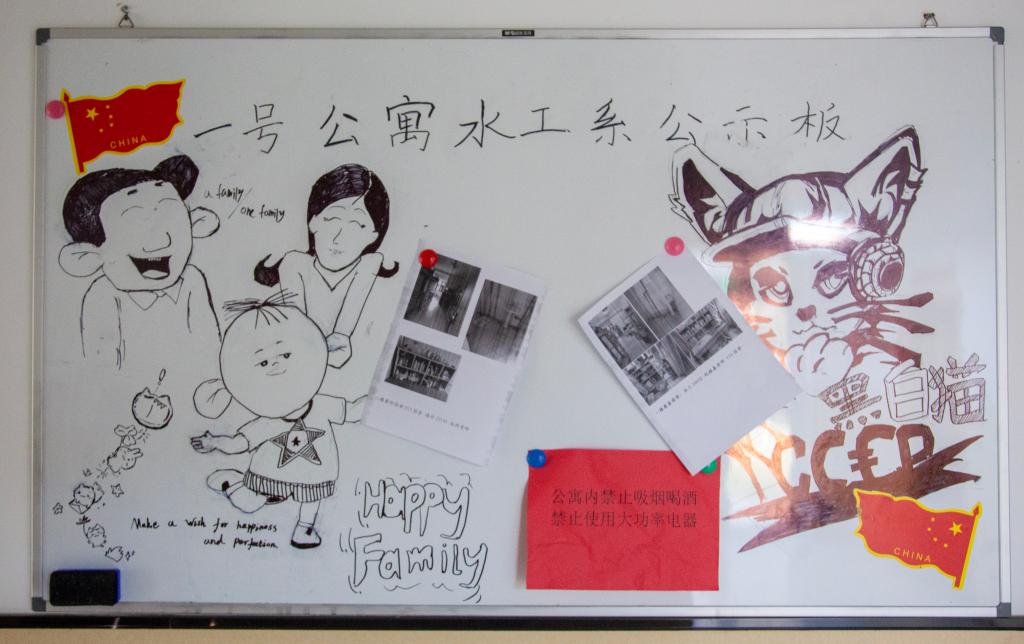 一号公寓水工系公示板
CHINA
a family
/one family
黑白猫
Make a wish for happiness
and perfection
HAPPY
Family
公寓内禁止吸烟喝酒
禁止使用大功率电器
CHINA